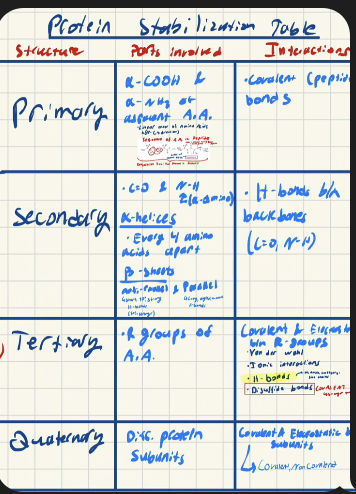 Protein Stabilization Table
Structure
Parts involved
Interactions
Primary
α-COOH &
α-NH₂ of
adjacent A.A.
•Covalent (peptide
bonds
Secondary
•C=O & N-H
α-helices
•Every 4 amino
acids apart
β-sheets
anti-Parallel & Parallel
•H-bonds b/n
backbones
(C=O, N-H)
Tertiary
•R groups of
A.A.
Covalent & Electrosta
b/w R-groups
•Van der waal
•Ionic interactions
•H-bonds
•Disulfide bonds
COVALENT
Quaternary
Diff. protein
Subunits
Covalent & Electrostatic b
Subunits
Covalent, Non Covalent